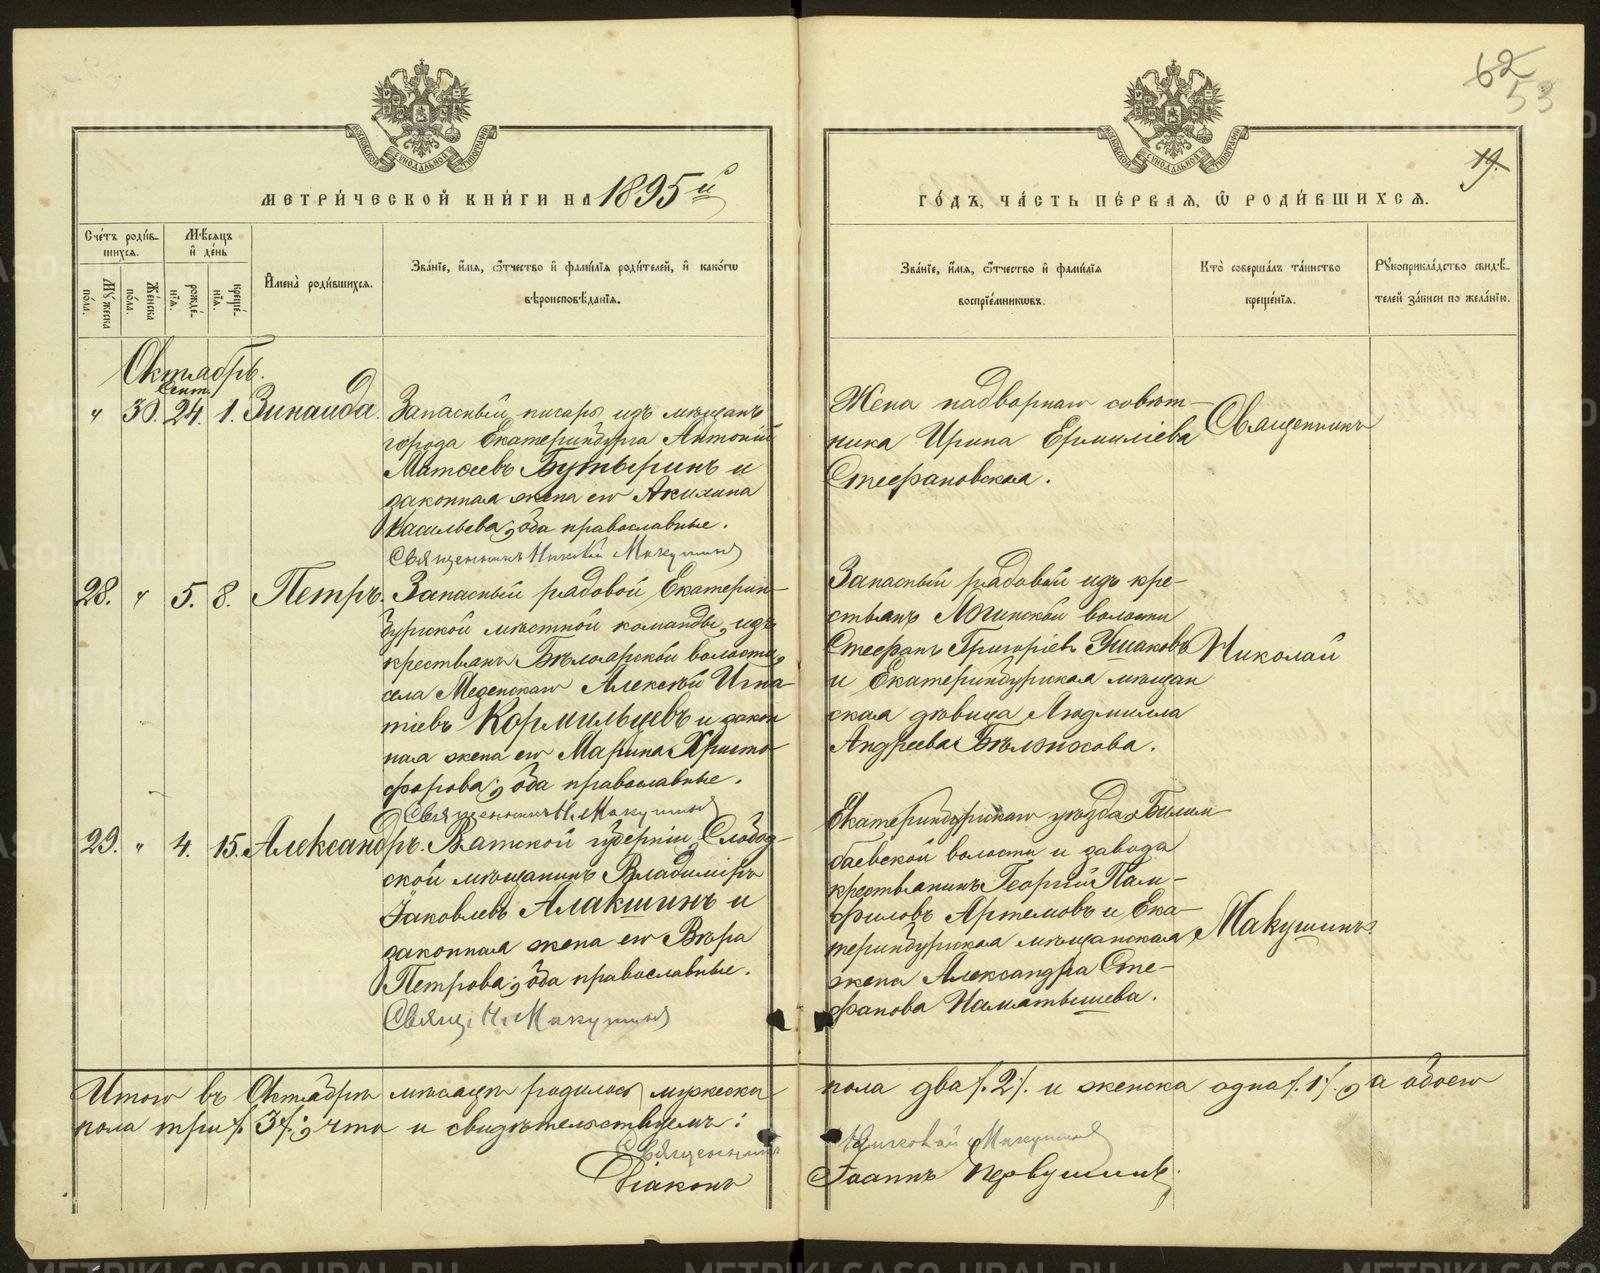 62
53
19.
МОСКОВСКОЙ СѴНОДАЛЬНОЙ ТИПОГРАФІИ
МОСКОВСКОЙ СѴНОДАЛЬНОЙ ТИПОГРАФІИ
МЕТРИ́ЧЕСКОЙ КНИ́ГИ НА 1895й
ГО́ДЪ, ЧА́СТЬ ПЕ́РВАЯ, Ѽ РОДИ́ВШИХСЯ.
Сче́тъ роди́в-
шихся.
Мѣ́сяцъ
и де́нь
Му́жеска по́ла.
Же́нска по́ла.
рожде́-
нія.
креще́-
нія.
Имена̀ роди́вшихся.
Зва́ніе, и́мя, ѻ҆́тчество и фами́лія роди́телей, и како́гѡ
вѣроисповѣ́данія.
Зва́ніе, и́мя, ѻ҆́тчество и фами́лія
воспріе́мниковъ.
Кто̀ соверша́лъ та́инство
креще́нія.
Рукоприкла́дство свидѣ́-
телей за́писи по жела́нію.
Октябрь.
Сент.
" 30. 24. 1. Зинаида.
Запасный писарь изъ мѣщанъ
города Екатеринбурга Антоній
Матѳеевъ Бутыринъ и
законная жена его Акилина
Васильева; оба православные.
Священникъ Николай Макушинъ
Жена надворнаго совѣт-
ника Ирина Ермиліева
Стефановская.
Священникъ
28. " 5. 8. Петръ.
Запасный рядовой Екатерин-
бургской мѣстной команды, изъ
крестьянъ Бѣлоярской волости,
села Меденскаго Алексѣй Игна-
тіевъ Кормильцевъ и закон
ная жена его Марина Христо
форова; оба православные.
Священникъ Н. Макушинъ
Запасный рядовой изъ кре-
стьянъ волости
Стефанъ Григоріевъ Ушаковъ
и Екатеринбургская мѣщан
ская дѣвица Людмилла
Андреева
Николай
29. " 4. 15. Александръ.
Вятской губерніи, Слобод-
ской мѣщанинъ Владиміръ
Іаковлевъ Алакшинъ и
законная жена его Вѣра
Петрова; оба православные.
Свящ. Н. Макушинъ
Екатеринбургскаго уѣзда, Билим-
баевской волости и завода
крестьянинъ Георгій Пам-
филовъ Артемовъ и Ека-
теринбургская мѣщанская
жена Александра Сте-
фанова
Макушинъ.
Итого въ Октябрѣ мѣсяцѣ родилось мужеска
пола два /.2./. и женска одна /.1./., а обоего
пола три /.3./.; что и свидѣтельствуемъ:
Священникъ
Николай Макушинъ
Діаконъ
Іоаннъ Первушинъ.
METRIKI.GASO-URAL.RU